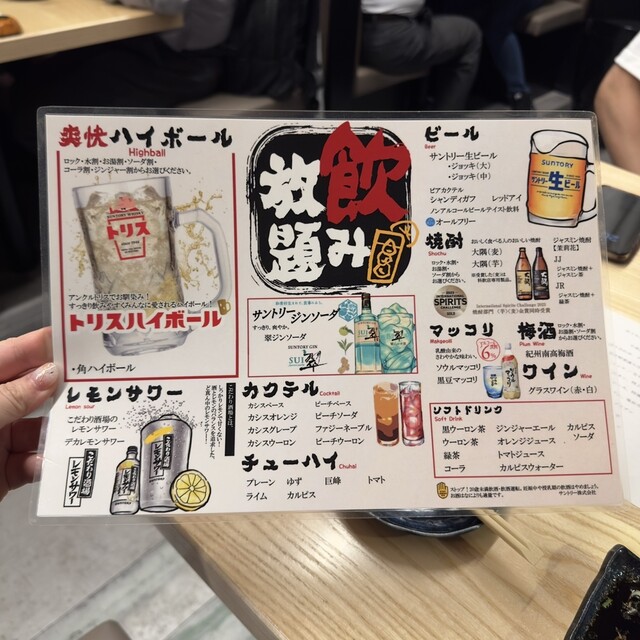 爽快ハイボール
Highball
ロック・水割・お湯割・ソーダ割・
コーラ割・ジンジャー割からお選びください。
トリス
アンクルトリスでお馴染み!
すっきり飲みやすくみんなに愛されるハイボール!
トリスハイボール
・角ハイボール
飲み放題
サントリージンソーダ
すっきり、爽やか。
翠ジンソーダ
SUNTORY GIN
SUI 翠
レモンサワー
Lemon sour
こだわり酒場の
レモンサワー
デカレモンサワー
こだわり酒場のレモンサワー
こだわり酒場とは、
カクテル
Cocktail
カシスベース
ピーチベース
カシスオレンジ
ピーチソーダ
カシスグレープ
ファジーネーブル
カシスウーロン
ピーチウーロン
チューハイ
Chuhai
プレーン
ゆず
巨峰
トマト
ライム
カルピス
ビール
Beer
サントリー生ビール
・ジョッキ(大)
・ジョッキ(中)
ビアカクテル
シャンディガフ
レッドアイ
ノンアルコールビールテイスト飲料
オールフリー
SUNTORY
サントリー生ビール
焼酎
Shochu
ロック・水割・
お湯割・
ソーダ割から
お選びください。
おいしく食べる人のおいしい焼酎
大隅(麦)
大隅(芋)
ジャスミン焼酎
【茉莉花】
JJ
ジャスミン焼酎+
ジャスミン茶
JR
ジャスミン焼酎+
緑茶
SPIRITS
International Spirits Challenge 2021
マッコリ
Makgeolli
乳酸由来の
さわやかな味わい。
アルコール分
6%
ソウルマッコリ
黒豆マッコリ
梅酒
Plum Wine
ロック・水割・
お湯割・ソーダ割
からお選びください。
紀州南高梅酒
ワイン
Wine
グラスワイン(赤・白)
ソフトドリンク
Soft Drink
黒ウーロン茶
ジンジャーエール
カルピス
ソーダ
ウーロン茶
オレンジジュース
緑茶
トマトジュース
コーラ
カルピスウォーター
ストップ!20歳未満飲酒・飲酒運転。妊娠中や授乳期の飲酒はやめましょう。
お酒はなによりも適量です。
サントリー株式会社